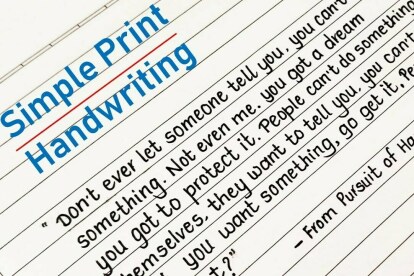 Simple Print
Handwriting
"Don't ever let someone tell you, you can't
something. Not even me. you got a dream
you got to protect it. People can't do something
themselves, they want to tell you, you can't
you want something, go get it. Pe
t?"
- From Pursuit of Ha